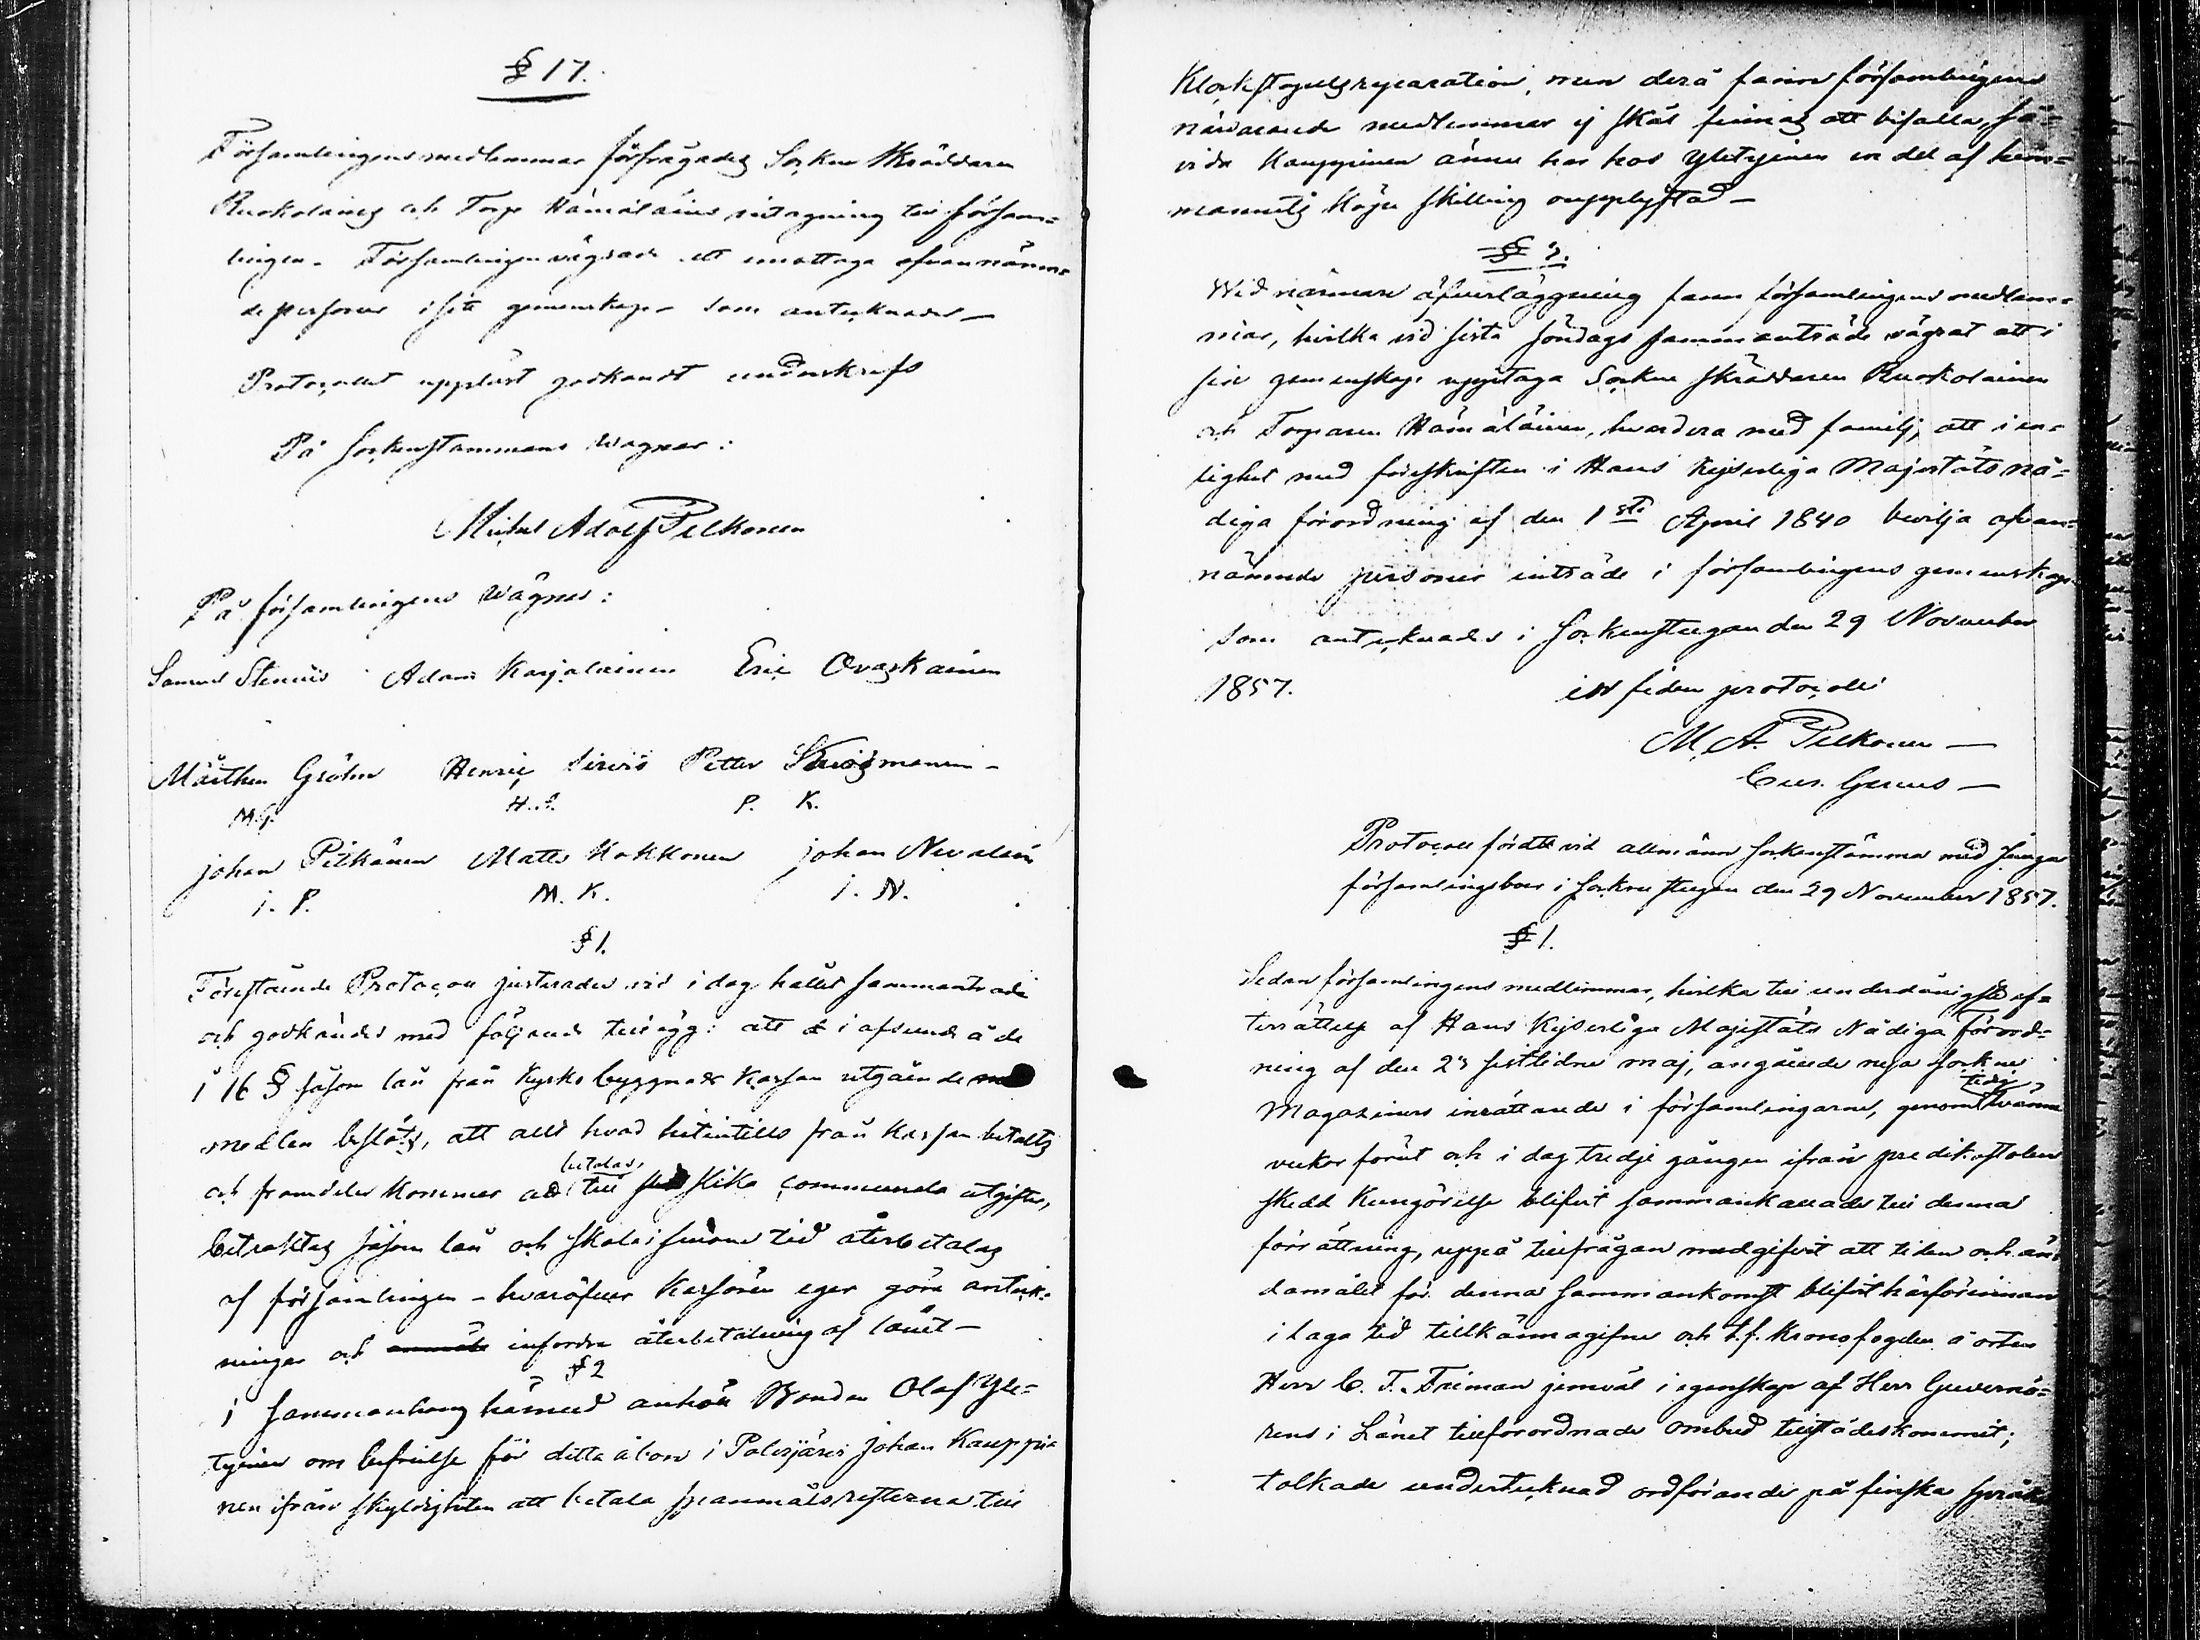 § 17.
Församlingens medlemmar förfrågades Sockne Skräddaren
Ruokolaines och Torp. Hämäläins intagning till försam=
lingen. Församlingen vägrade att emottaga ofvannämn=
de personer i sitt gemenskap - som antecknades -
Protocollet uppläst godkändt underskrefs
På Sockenstammans wägnar:
Michel Adolf Pelkonen
På församlingens wägnar:
Samuel Stenius Adam Karjalainen Eric Ovaskainen
Mårthen Gröhn Henric Sirviö Petter
M.G. H.S. P. K.
johan Pitkänen Matts Kokkonen johan Nevalain
i. P. M. K. i. N.
§ 1.
Förestående Protocoll justerades vid i dag hållet sammanträde
och godkändes med följande tillägg: att i afseende å de
i 16 § såsom lån från Kyrkobyggnads Kassan utgående
medlen beslöts, att allt hvad hitintills från Kassan betalts
och framdeles kommer att betalas till slika communela utgifter,
betraktas såsom lån och skola i sinom tid återbetalas
af församlingen - hvaröfver Kassören eger göra anteck=
ningar och infordra återbetalning af lånet -
§ 2
i sammanhang härmed anhöll Bonden Olof Yle=
tyinen om befrielse för ditta åbon i Palojärvi johan Kauppi=
nen ifrån skyldigheten att betala spanmålsresterna till
Klockstapelsreparation, men derå fann församlingens
närvarande medlemmar ej skäl finnas att bifalla, så=
vida Kauppinen ännu har hos Yletyinen en del af hem=
mannets Köpe skilling oupplyftad -
§ 3.
Wid närmare öfverläggning fann församlingens medlem=
mar, hvilka vid sista söndags sammanträde vägrat att i
sin gemenskap upptaga Sockne skräddaren Ruokolainen
och Torparen Hämäläinen, hvardera med familj, att i en=
lighet med föreskriften i Hans Kejserliga Majestäts nå=
diga förordning af den 1sta April 1840 bevilja ofvan=
nämnde personer inträde i församlingens gemenskap
som antecknades i Sockenstugan den 29 November
1857. in fidem protocolli
M. A. Pelkonen -
Protocoll fördt vid allmänn sockenstämma med
församlingsboer i Sockne stugan den 29 November 1857.
§ 1.
Sedan församlingens medlemmar, hvilka till underdånigste ef=
terrättelse af Hans Kejserliga Majestäts Nådiga Förord=
ning af den 23 sistlidne maj, angående nya sockne
Magaziners inrättande i församlingarne, genom tvänne
veckor förut och i dag tredje gången ifrån predikstolen
skedd Kungörelse blifvit sammankallade till denna
förrättning, uppå tillfrågan medgifvit att tiden och än=
damålet för denna sammankomst blifvit härförinnan
i laga tid tillkännagifne och t.f. Kronofogden å orten
Herr C. T. Friman jemväl i egenskap af Herr Guvernö=
rens i Länet tillförordnade ombud tillstädeskommit;
tolkade undertecknad ordförande på finska språket